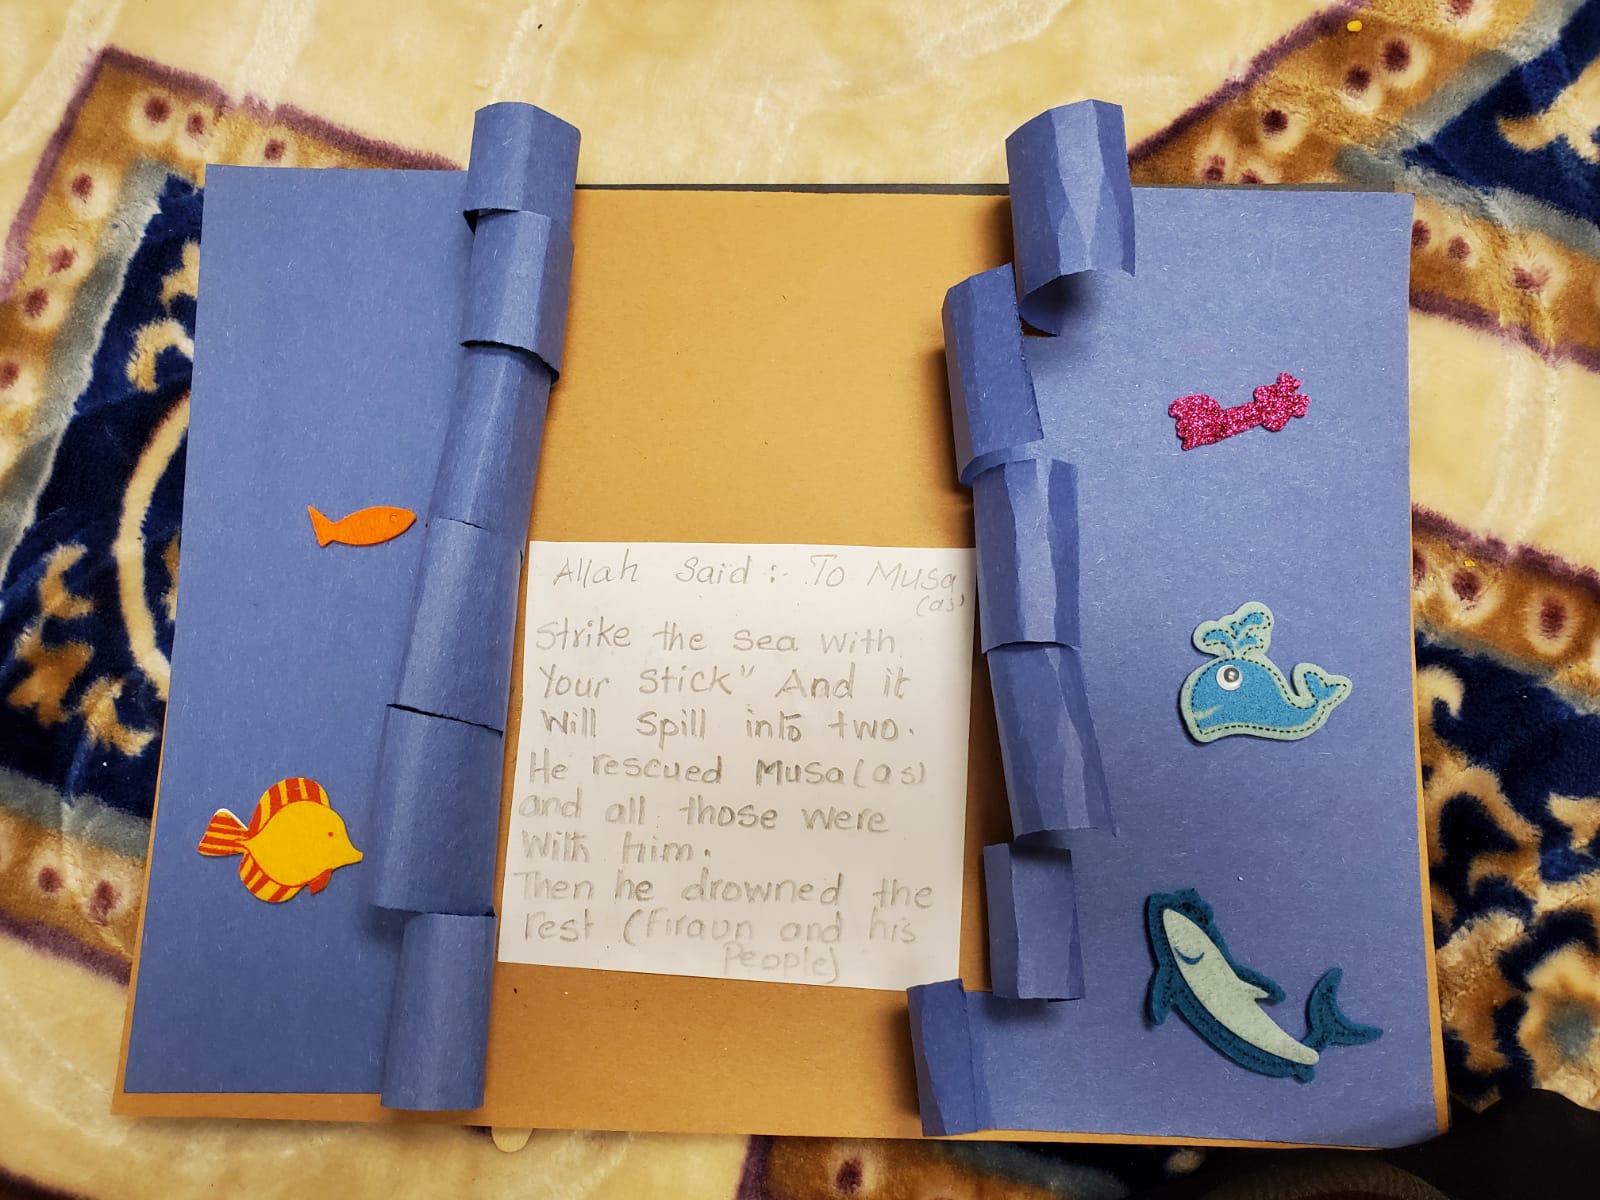 Allah Said :- To Musa
(as)
Strike the sea with
Your stick" And it
Will spill into two.
He rescued Musa (as)
and all those were
With him.
Then he drowned the
rest (Firaun and his
People)